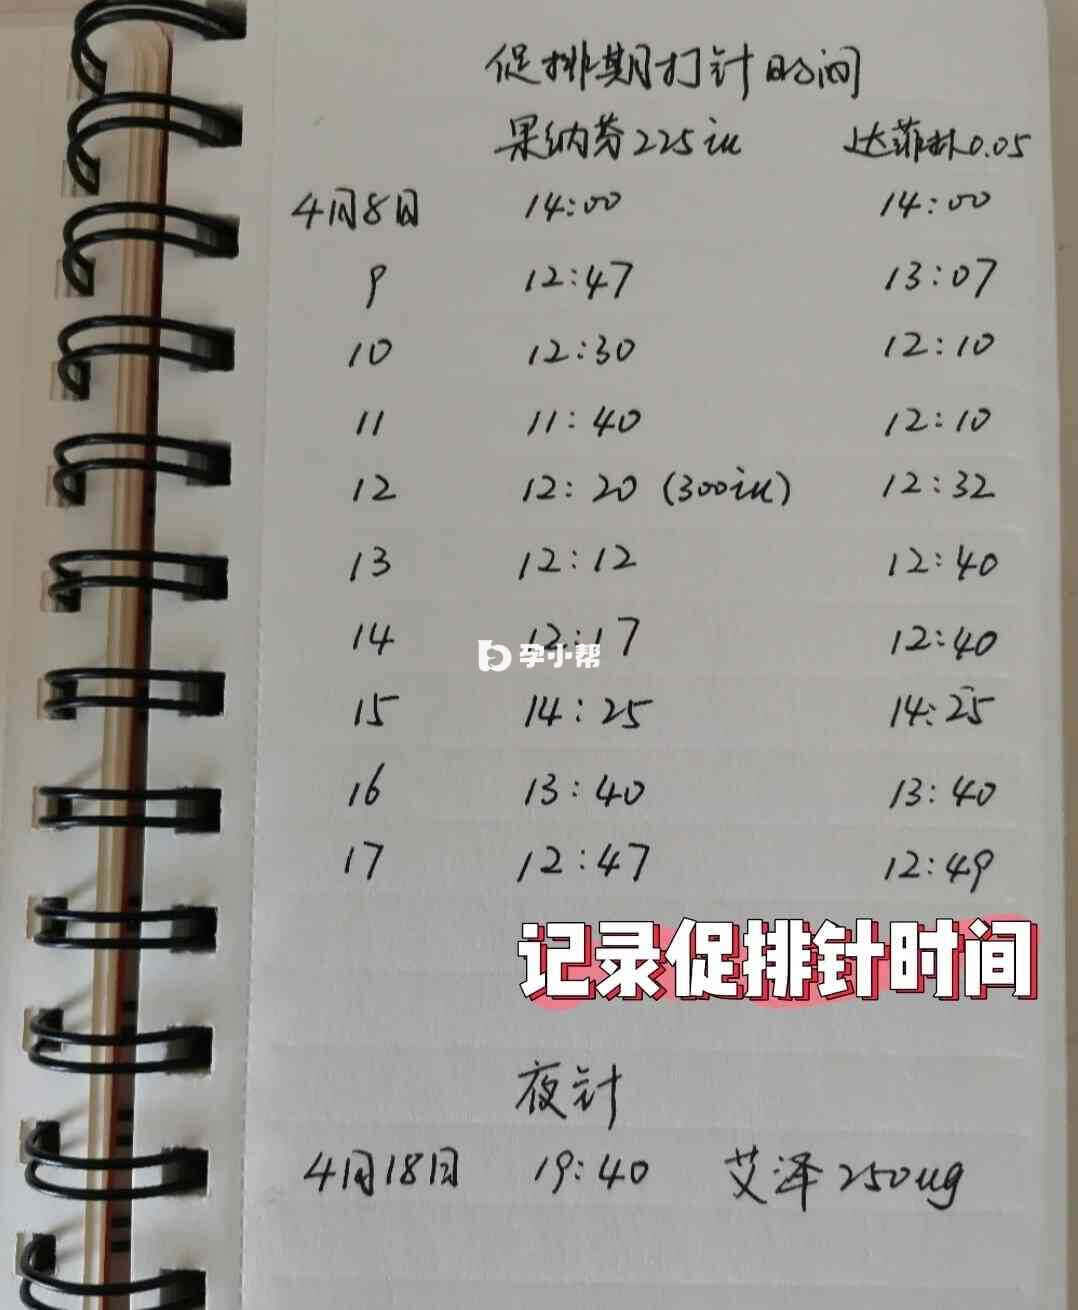 促排期打针时间
果纳芬225iu 达菲林0.05
4月8日 14:00 14:00
9 12:47 13:07
10 12:30 12:10
11 11:40 12:10
12 12:20 (300iu) 12:32
13 12:12 12:40
14 12:17 12:40
孕小帮
15 14:25 14:25
16 13:40 13:40
17 12:47 12:49
记录促排针时间
夜针
4月18日 19:40 艾泽250ug